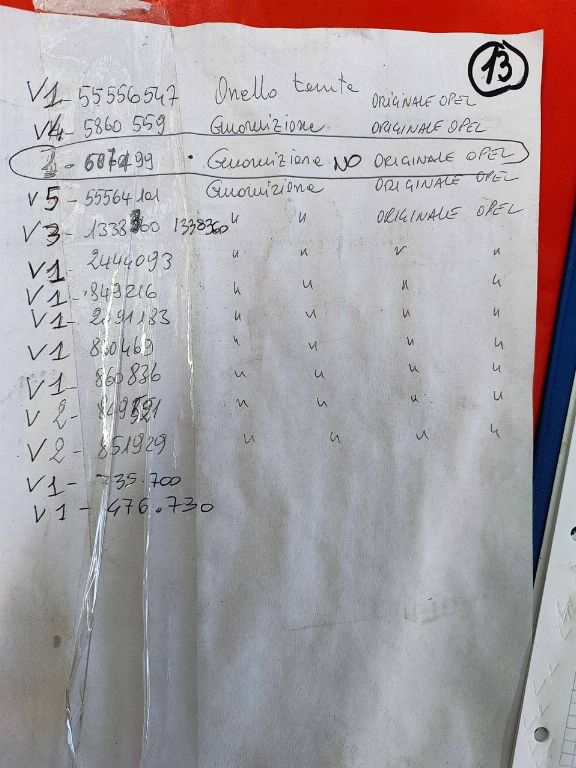 13
V1- 55556547 Anello tenuta ORIGINALE OPEL
V4- 5860 559 Guarnizione ORIGINALE OPEL
- Guarnizione NO ORIGINALE OPEL
V5- 55564101 Guarnizione ORIGINALE OPEL
V3- 1338360 1338360 " " ORIGINALE OPEL
V1- 2444093 " " " "
V1- 849216 " " " "
V1- 2191183 " " " "
V1- 860469 " " " "
V1- 860836 " " " "
V2- " " " "
V2- 851929 " " " "
V1- 735.700
V1- 476.730